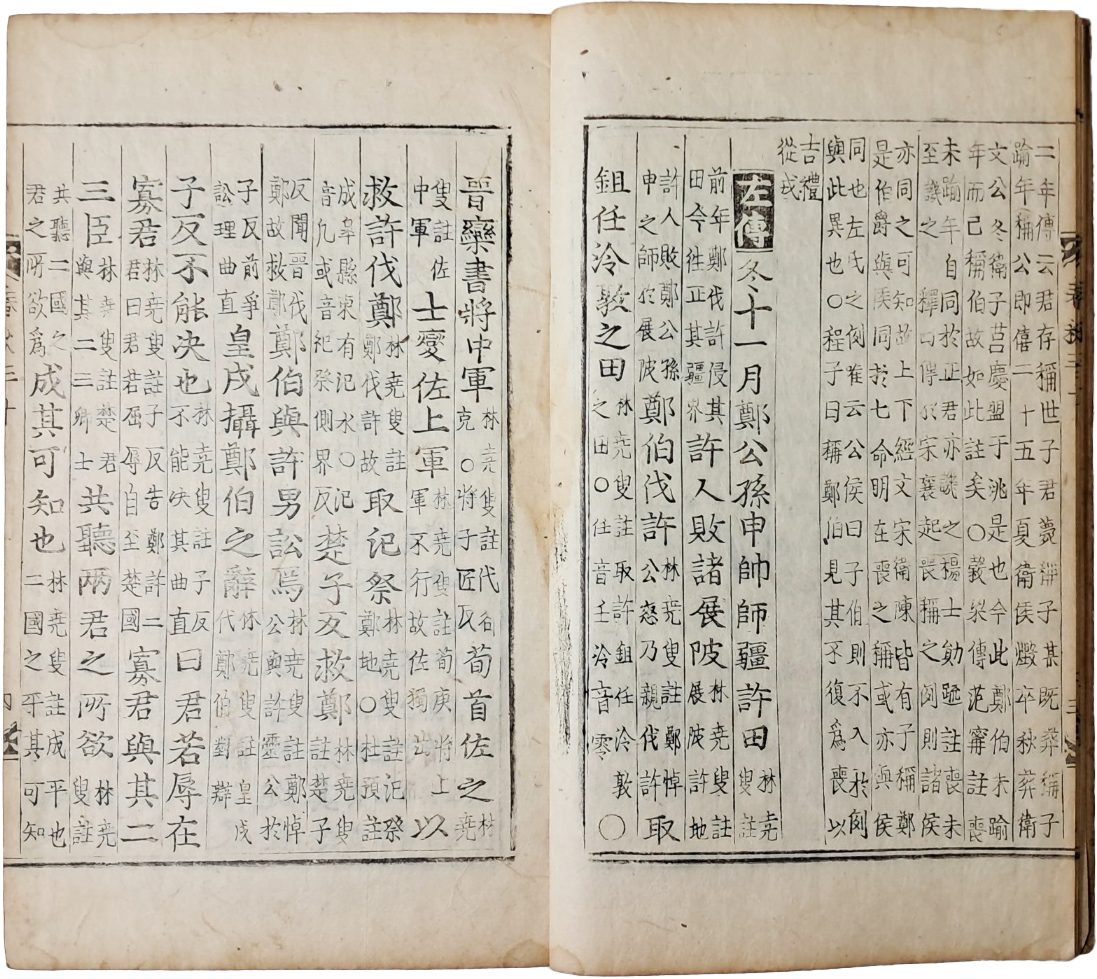 二年傳云君存稱世子君薨稱子某旣葬稱子
踰年稱公即僖二十五年夏衛侯燬卒秋葬衛
文公冬衛子莒慶盟于洮是也今此鄭伯未踰
年而己稱伯故如此註矣○穀梁傳范甯註喪
未踰年自同於正君亦譏之楊士勛䟽註喪未
至譏之 釋曰傳於宋襄起喪稱之例則諸侯
亦同之可知故上下經文宋衛陳皆有子稱鄭
是伯爵與侯同於七命明在喪之稱或亦與侯
同也左氏之例唯云公侯曰子伯則不入於例
與此異也○程子曰稱鄭伯見其不復爲喪以
吉禮
從戎
左傳冬十一月鄭公孫申帥師疆許田林堯叟註
前年鄭伐許侵其田今往正其疆界許人敗諸展陂林堯叟註展陂許地
許人敗鄭公孫申之師於展陂鄭伯伐許林堯叟註鄭悼公怒乃親伐許取
鉏任泠敦之田林堯叟註取許鉏任泠敦之田○任音壬泠音零○
晉欒書將中軍林堯叟註代郤克○將子匠反荀首佐之林堯
叟註佐中軍士燮佐上軍林堯叟註荀庚將上軍不行故佐獨出以
救許伐鄭林堯叟註鄭伐許故取氾祭林堯叟註氾祭鄭地○杜預註
成臯縣東有氾水○氾音凡或音祀祭側界反楚子反救鄭林堯叟註楚子
反聞晉伐鄭故救鄭鄭伯與許男訟焉林堯叟註鄭悼公與許靈公於
子反前爭訟理曲直皇戌攝鄭伯之辭林堯叟註皇戌代鄭伯對辯
子反不能決也林堯叟註子反不能决其曲直曰君若辱在
寡君林堯叟註子反告鄭許二君曰君若屈辱自至楚國寡君與其二
三臣林堯叟註楚君與其二三卿士共聽兩君之所欲林堯叟註
共聽二國之君之所欲爲成其可知也林堯叟註成平也二國之平其可知